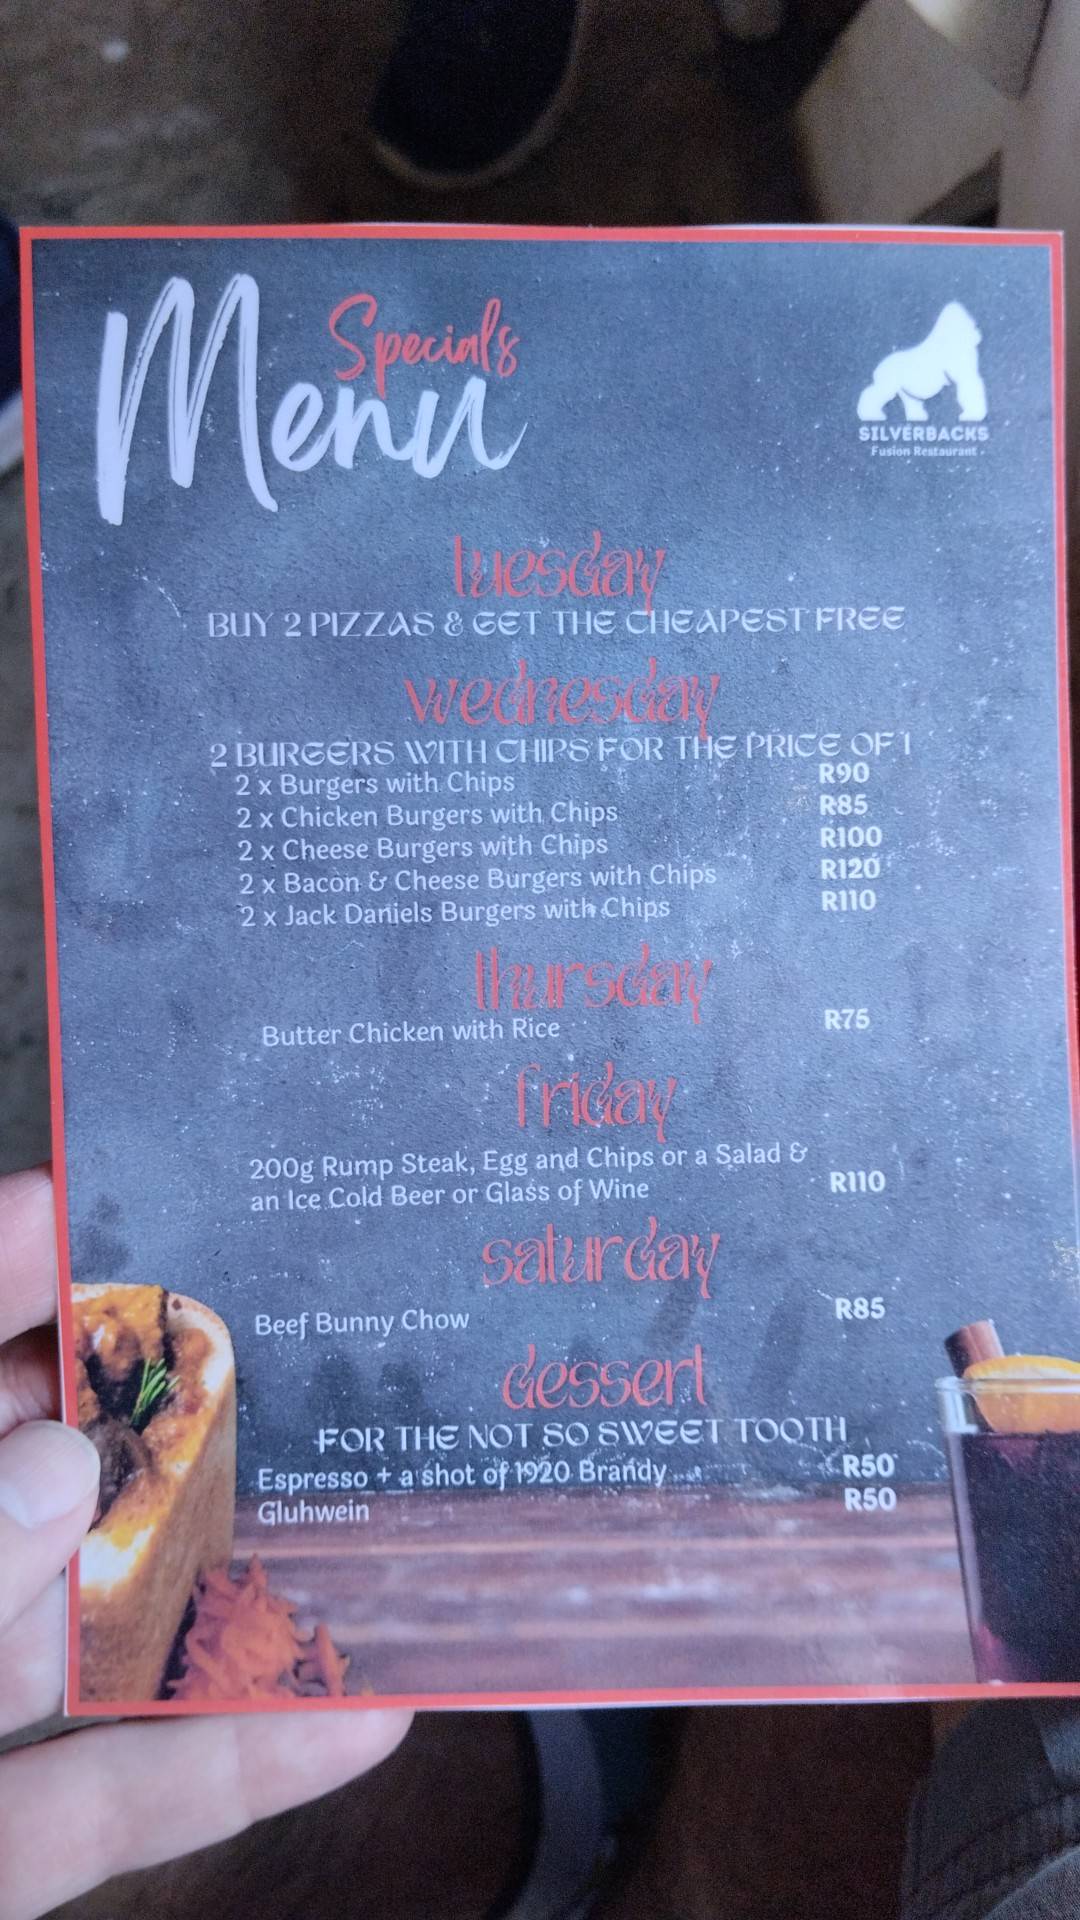 Specials
Menu
SILVERBACKS
Fusion Restaurant
tuesday
BUY 2 PIZZAS & GET THE CHEAPEST FREE
wednesday
2 BURGERS WITH CHIPS FOR THE PRICE OF 1
2 x Burgers with Chips R90
2 x Chicken Burgers with Chips R85
2 x Cheese Burgers with Chips R100
2 x Bacon & Cheese Burgers with Chips R120
2 x Jack Daniels Burgers with Chips R110
thursday
Butter Chicken with Rice R75
friday
200g Rump Steak, Egg and Chips or a Salad &
an Ice Cold Beer or Glass of Wine R110
saturday
Beef Bunny Chow R85
dessert
FOR THE NOT SO SWEET TOOTH
Espresso + a shot of 1920 Brandy R50
Gluhwein R50